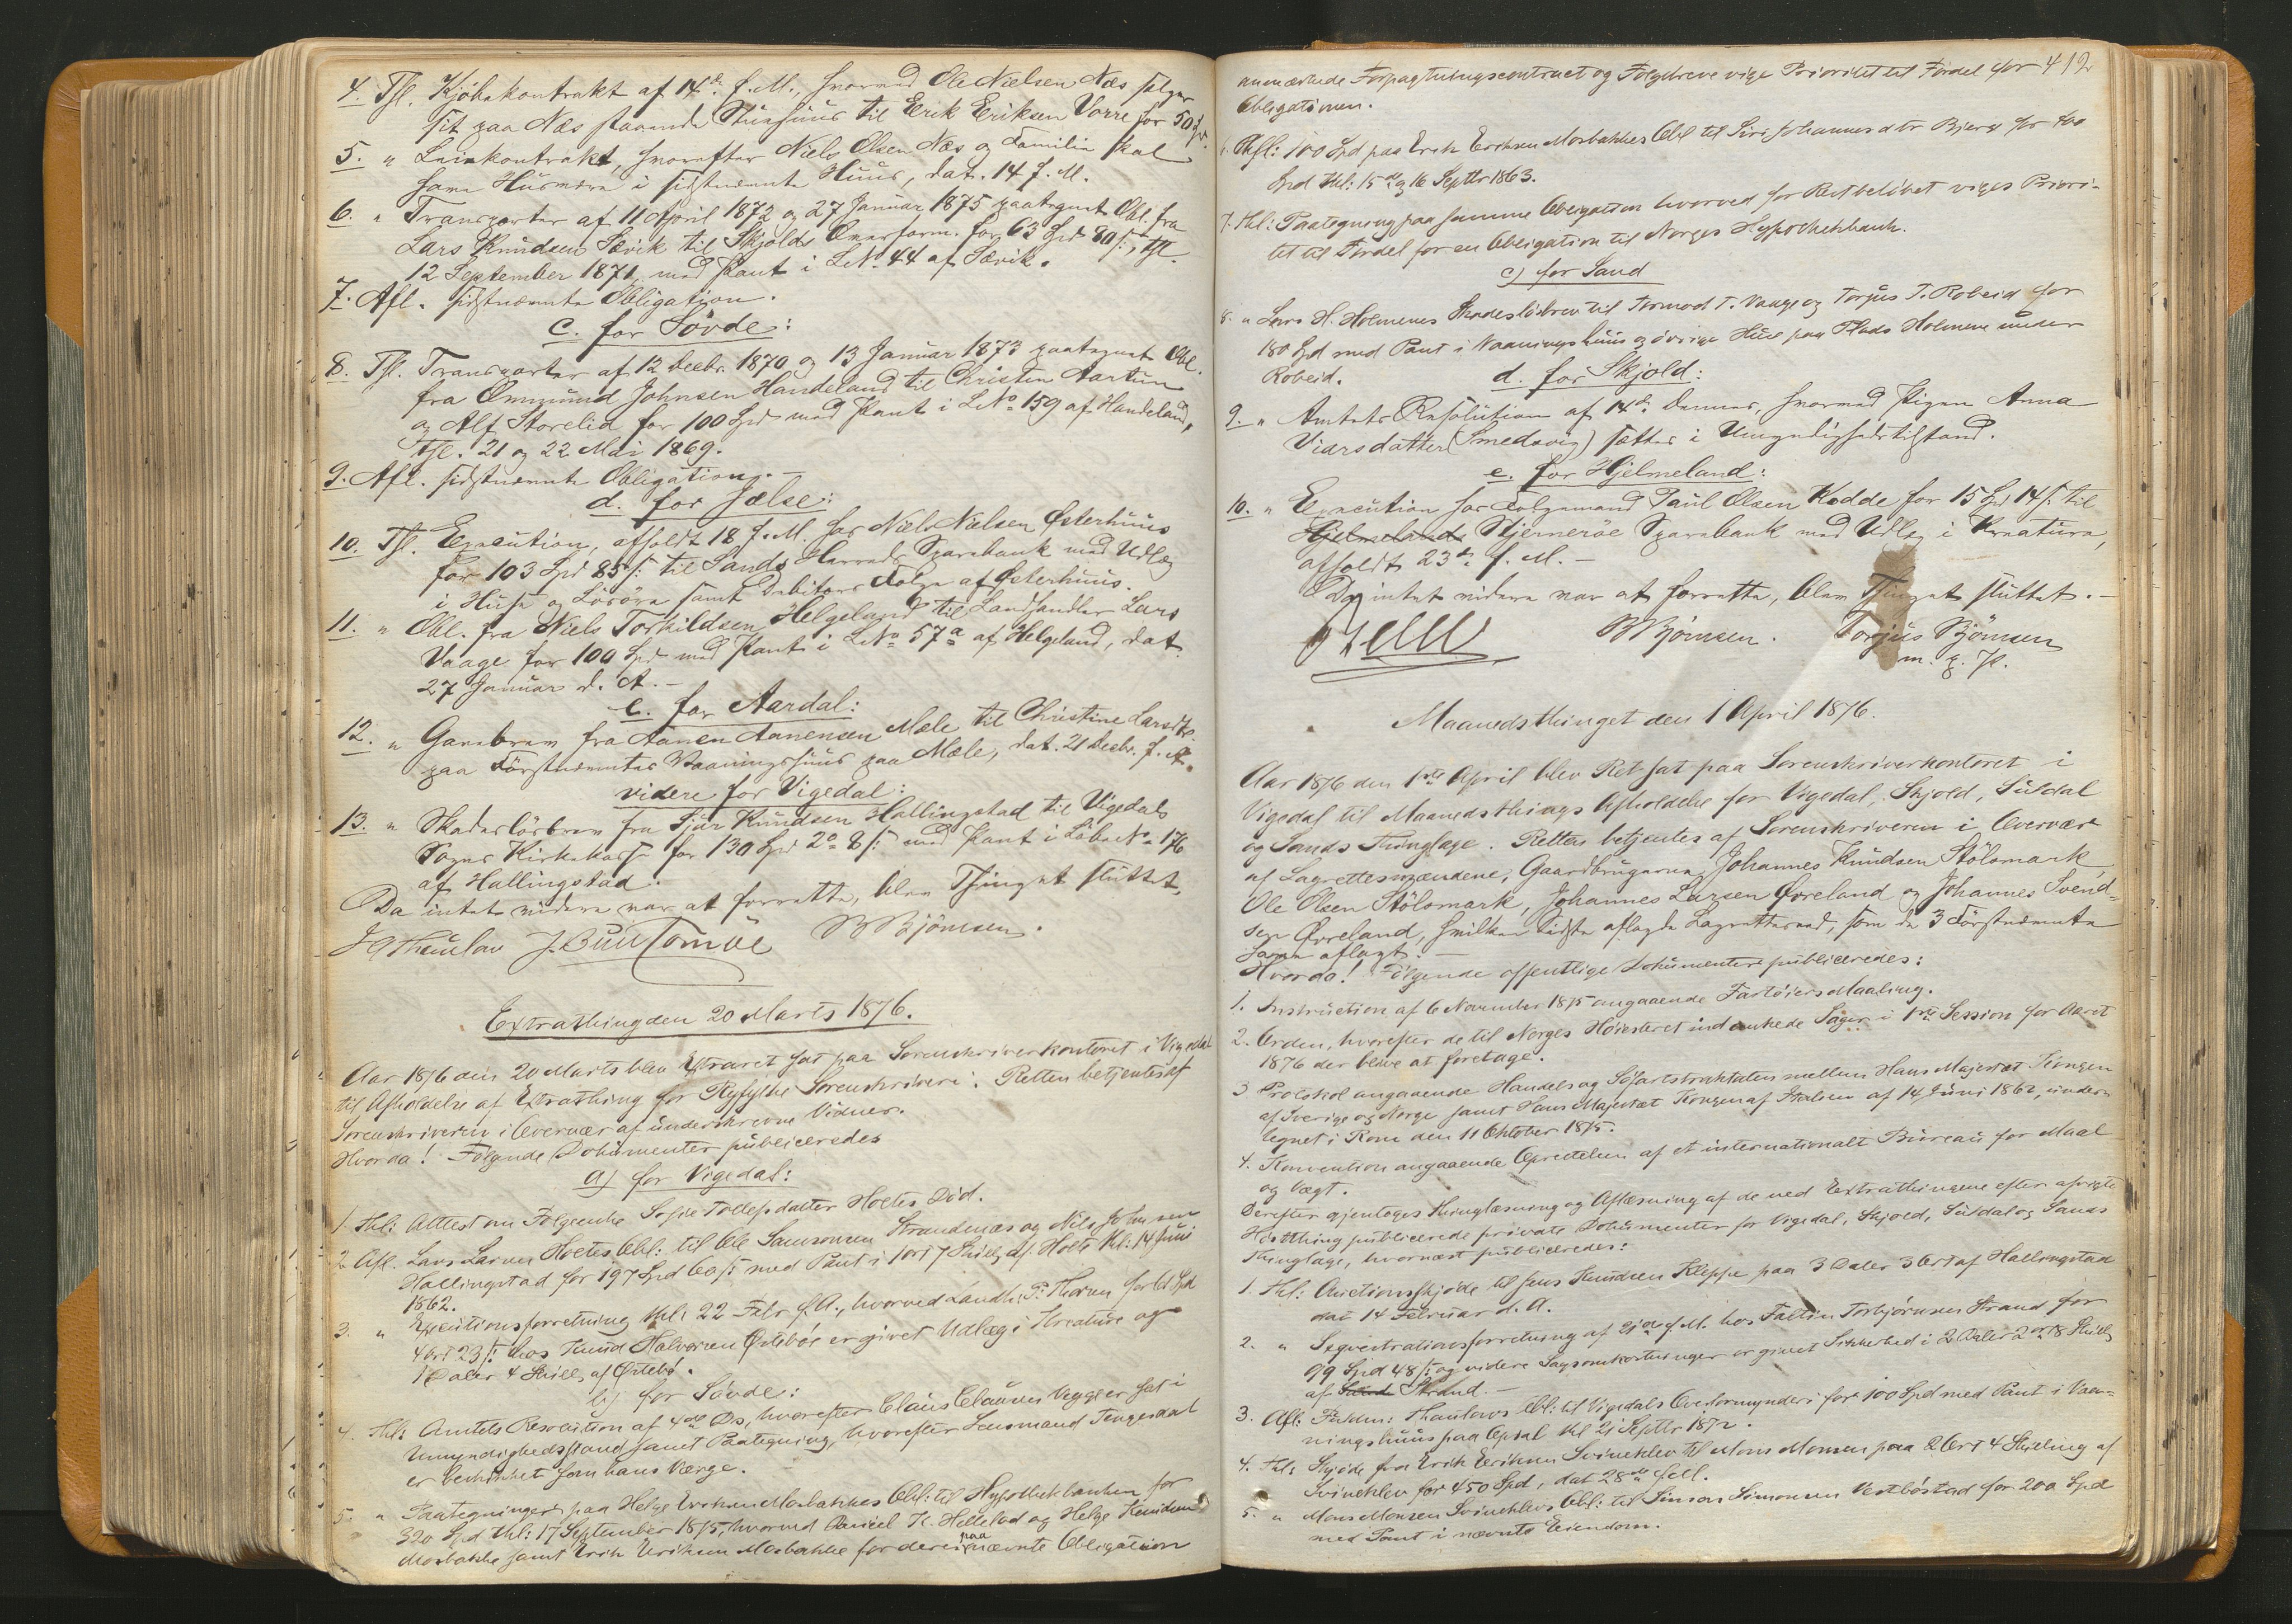 4. Thl. Kjöbekontrakt af 14de f. M., hvormed Ole Nielsen Næs sælger
sit paa Næs staaende Stuehuus til Erik Eriksen Vorre for 50 Spd.
5. " Leiekontrakt, hvorefter Niels Olsen Næs og Familie skal
have Huusvære i sidstnævnte Huus, dat. 14 f. M.
6. " Transporter af 11 April 1872 og 27 Januar 1875 paategnet Obl. fra
Lars Knudsen Sævik til Skjolds Overform. for 63 Spd 80 s., thl.
12 September 1871, med Pant i LNo 44 af Sævik.
7. Afl. sidstnævnte Obligation.
c. for Sövde:
8. Thl. Transporter af 12 Decbr. 1870 og 13 Januar 1873 paategnet Obl.
fra Ommund Johnsen Handeland til Christen Aartun
og Alf Storelid for 100 Spd med Pant i LNo 159 af Handeland,
thl. 21 og 22 Mai 1869.
9. Afl. sidstnævnte Obligation. -
d. for Jælse:
10. Thl. Execution, afholdt 18 f. M. hos Niels Nielsen Østerhuus
for 103 Spd 85 s. til Sands Herreds Sparebank med Udlæg
i Huse og Lösöre samt Debitors Folge af Østerhuus.
11. " Obl. fra Niels Torkildsen Helgeland til Landhandler Lars
Vaage for 100 Spd med Pant i LNo 57a af Helgeland, dat.
27 Januar d. A. -
e. for Aardal:
12. " Gavebrev fra Aanen Aanensen Mæle til Christine Larsdtr.
paa Förstnævntes Vaaningshuus paa Mæle, dat. 21 Decbr. f. A.
videre for Vigedal:
13. " Skadeslösbrev fra Sjur Knudsen Hallingstad til Vigedals
Sogns Kirkekasse for 130 Spd 2o 8 s. med Pant i Löbe No 176
af Hallingstad.
Da intet videre var at forrette, blev Thinget sluttet.
J Thaulow J. Guttomöe B Bjömsen.
Extrathing den 20 Marts 1876.
Aar 1876 den 20 Marts blev Extraret sat paa Sorenskriverkontoret i Vigedal
til Afholdelse af Extrathing for Ryfylke Sorenskriveri. Retten betjentes af
Sorenskriveren i Overvær af underskrevne Vidner.
Hvorda! Følgende Dokumenter publiceredes
a) for Vigedal:
1. Thl: Attest om Folgeenke Sofie Tollefsdatter Hoctes Död.
2. Afl. Lars Larsen Hoctes Obl: til Ole Samsonsen Strandenæs og Nils Johnsen
Hallingstad for 197 Spd 60 s. med Pant i 1 ort 7 Skill. af Hocte thl: 14 Juni
1862.
3. " Executionsforretning thl: 22 Febr f. A., hvorved Landh. P. Thorsen for 61 Spd
4 ort 23 s. hos Knud Halvorsen Örtebö er givet Udlæg i Kreature og
1 Daler 4 Skill. af Örtebö.
b) for Sövde:
4. Thl: Amtets Resolution af 4de Ds, hvorefter Claus Clausen Vegge er sat i
Umyndighedsstand samt Paategning, hvorefter Lensmand Tengesdal
er beskikket som hans Verge.
5. " Paategninger paa Helge Eriksen Mosbakkes Obl: til Hypothekbanken for
320 Spd thl: 17 September 1875, hvorved Daniel K. Helleland og Helge Knudsen
Mosbakke samt Erik Eriksen Mosbakke for deres paa nævnte Obligation
412
anmærkede Forpagtningscontract og Folgebreve vige Prioritet til Fordel for
Obligationen.
6. Afl: 100 Spd paa Erik Eriksen Mosbakkes Obl til Siri Johannesdtr Bjerg for 400
Spd thl: 15 og 16 Septbr 1863.
7. thl: Paategning paa samme Obligation hvorved for Restbeløbet viges Priori-
tet til Fordel for en Obligation til Norges Hypothekbank.
c) for Sand
8. " Lars H. Holmenes Skadeslösbrev til Tormod T. Vaage og Torjus T. Robeid for
180 Spd med Pant i Vaaningshuus og övrige Huse paa Plads Holmene under
Robeid.
d. for Skjold:
9. " Amtets Resolution af 14de dennes, hvorved Pigen Anna
Viarsdatter (Smedsvig) sættes i Umyndighedstilstand.
e. for Hjelmeland:
10. " Execution hos Folgemand Paul Olsen Kodde for 15 Spd 14 s. til
Hjelmelands Stjernerøe Sparebank med Udlæg i Kreature,
afholdt 23de f. M. -
Da intet videre var at forrette, blev Thinget sluttet. -
B Bjömsen. Torjus Bjömsen
m. p. P.
Maanedsthinget den 1 April 1876.
Aar 1876 den 1ste April blev Ret sat paa Sorenskriverkontoret i
Vigedal til Maanedsthings Afholdelse for Vigedal, Skjold, Suldal
og Sands Thinglage. Retten betjentes af Sorenskriveren i Overvær
af Lagrettesmændene, Gaardbrugerne Johannes Knudsen Stölsmark,
Ole Olsen Stölsmark, Johannes Larsen Øvreland og Johannes Svend-
sen Øvreland, hvilken Sidste aflagde Lagretteseed, som de 3 Förstnævnte
have aflagt. -
Hvorda! Følgende offentlige Dokumenter publiceredes:
1. Instruction af 6 November 1875 angaaende Fartöiers Maaling.
2. Orden, hvorefter de til Norges Höiesteret indankede Sager i 1ste Session for Aaret
1876 der blive at foretage.
3. Protokol angaaende Handels og Söfartstraktaten mellem Hans Majestæt Kongen
af Sverige og Norge samt Hans Majestæt Kongen af Italien af 14 Juni 1862, under-
tegnet i Rom den 11 Oktober 1875.
4. Konvention angaaende Oprettelsen af et internationalt Bureau for Maal
og Vægt.
Derefter gjentoges Thinglæsning og Aflæsning af de ved Extrathingene efter afvigte
Høstthing publicerede private Dokumenter for Vigedal, Skjold, Suldal og Sands
Thinglage, hvornæst publiceredes:
1. Thl: Auctionsskjöde til Jens Knudsen Kleppe paa 3 Daler 3 Ort af Hallingstad
dat 14 Februar d. A.
2. " Seqvestrationsforretning af 21de f. M. hos Fattin Torbjørnsen Strand for
99 Spd 48 s. og videre Sagsomkostninger er givet Sikkerhed i 2 Daler 2 ort 8 Skill.
af Strand. -
3. Afl: Fuldm: Thaulows Obl: til Vigedals Overformynderi for 100 Spd med Pant i Vaa-
ningshuus paa Opsal thl 21 Septbr 1872.
4. Thl: Skjöde fra Erik Eriksen Svineklev til Mons Monsen paa 2 Ort 4 Skilling af
Svineklev for 450 Spd, dat 28de f. M.
5. " Mons Monsen Svineklevs Obl: til Simon Simonsen Vestböstad for 200 Spd
med Pant i nævnte Eiendom.